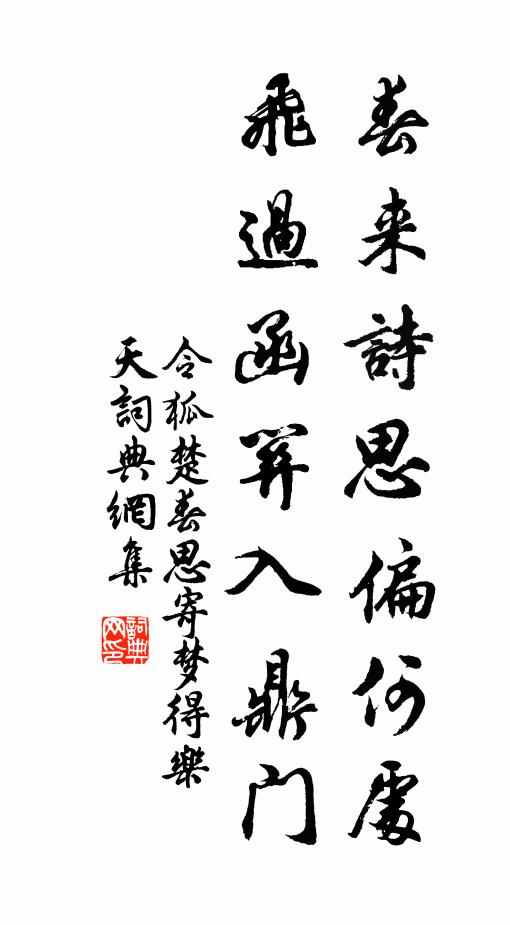 春来詩思偏何處
飛過函關入鼎門
令狐楚春思寄梦得樂
天詞典網集
詞典
网印